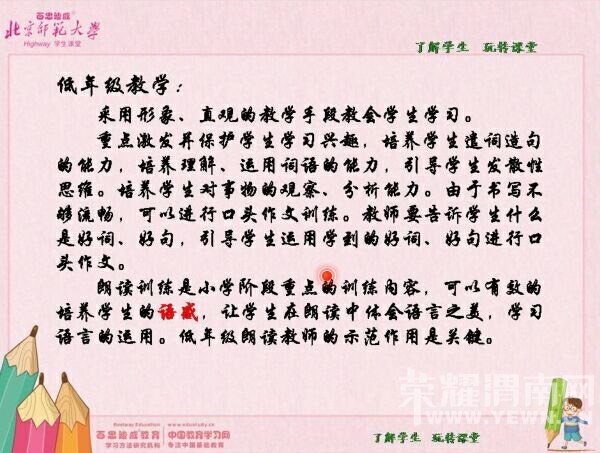 百忠汕成®
北京师范大学
Highway 学生课堂
了解学生 玩转课堂
低年级教学：
采用形象、直观的教学手段教会学生学习。
重点激发并保护学生学习兴趣，培养学生遣词造句
的能力，培养理解、运用词语的能力，引导学生发散性
思维。培养学生对事物的观察、分析能力。由于书写不
够流畅，可以进行口头作文训练。教师要告诉学生什么
是好词、好句，引导学生运用学到的好词、好句进行口
头作文。
朗读训练是小学阶段重点的训练内容，可以有效的
培养学生的语感，让学生在朗读中体会语言之美，学习
语言的运用。低年级朗读教师的示范作用是关键。
荣耀渭南网
WWW.YEWN.C
Bestway Education
学习方法研究机构
www.edustudy.cn
中国教育学习网
专注中国基础教育
了解学生 玩转课堂